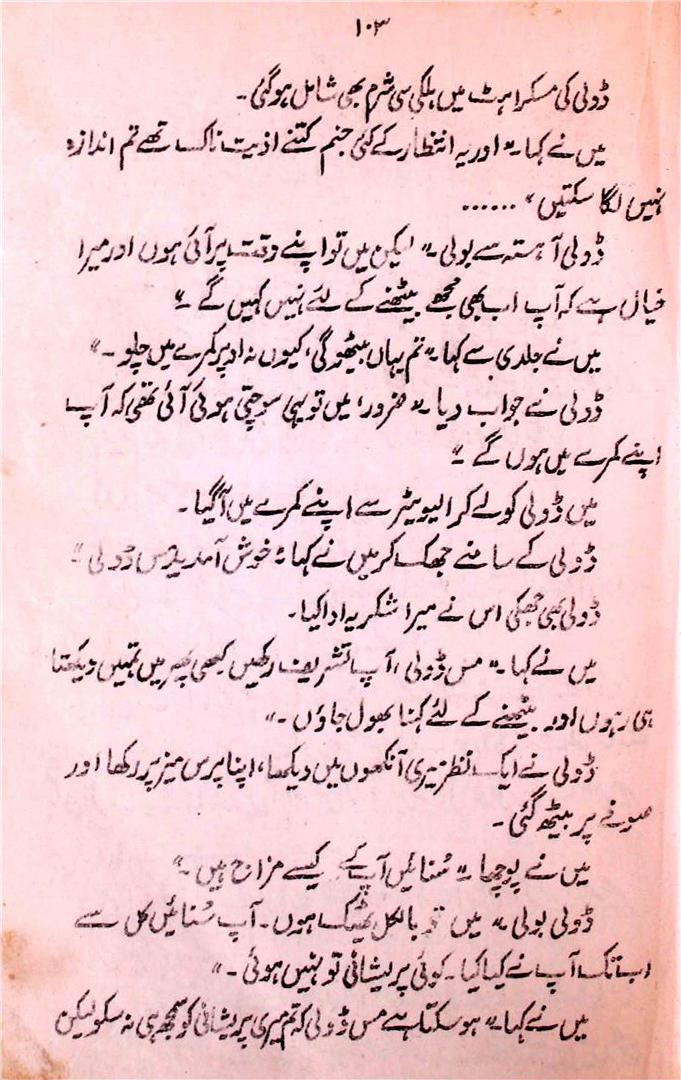 ۱۰۳
ڈولی کی مسکراہٹ میں ہلکی سی شرم بھی شامل ہوگئی۔
میں نے کہا۔" اور یہ انتظار کے کئی جنم کتنے اذیت ناک تھے تم اندازہ
نہیں لگا سکتیں" ......
ڈولی آہستہ سے بولی۔" لیکن میں تو اپنے وقت پر آئی ہوں اور میرا
خیال ہے کہ آپ اب بھی مجھے بیٹھنے کے لئے نہیں کہیں گے۔"
میں نے جلدی سے کہا۔" تم یہاں بیٹھو گی، کیوں نہ اوپر کمرے میں چلو۔"
ڈولی نے جواب دیا۔" ضرور، میں تو یہی سوچتی ہوئی آئی تھی کہ آپ
اپنے کمرے میں ہوں گے۔"
میں ڈولی کو لے کر الیویٹر سے اپنے کمرے میں آگیا۔
ڈولی کے سامنے جھک کر میں نے کہا۔" خوش آمدید مس ڈولی"۔
ڈولی بھی جھکی اس نے میرا شکریہ ادا کیا۔
میں نے کہا۔" مس ڈولی، آپ تشریف رکھیں کبھی پھر میں تمہیں دیکھتا
ہی رہوں اور بیٹھنے کے لئے کہنا بھول جاؤں۔"
ڈولی نے ایک نظر میری آنکھوں میں دیکھا، اپنا پرس میز پر رکھا اور
صوفے پر بیٹھ گئی۔
میں نے پوچھا۔" سُنائیں آپ کے کیسے مزاج ہیں۔"
ڈولی بولی۔" میں تو بالکل ٹھیک ہوں۔ آپ سُنائیں کل سے
اب تک آپ نے کیا کیا۔ کوئی پریشانی تو نہیں ہوئی۔"
میں نے کہا۔" ہو سکتا ہے مس ڈولی کہ تم میری پریشانی کو سمجھ ہی نہ سکو لیکن